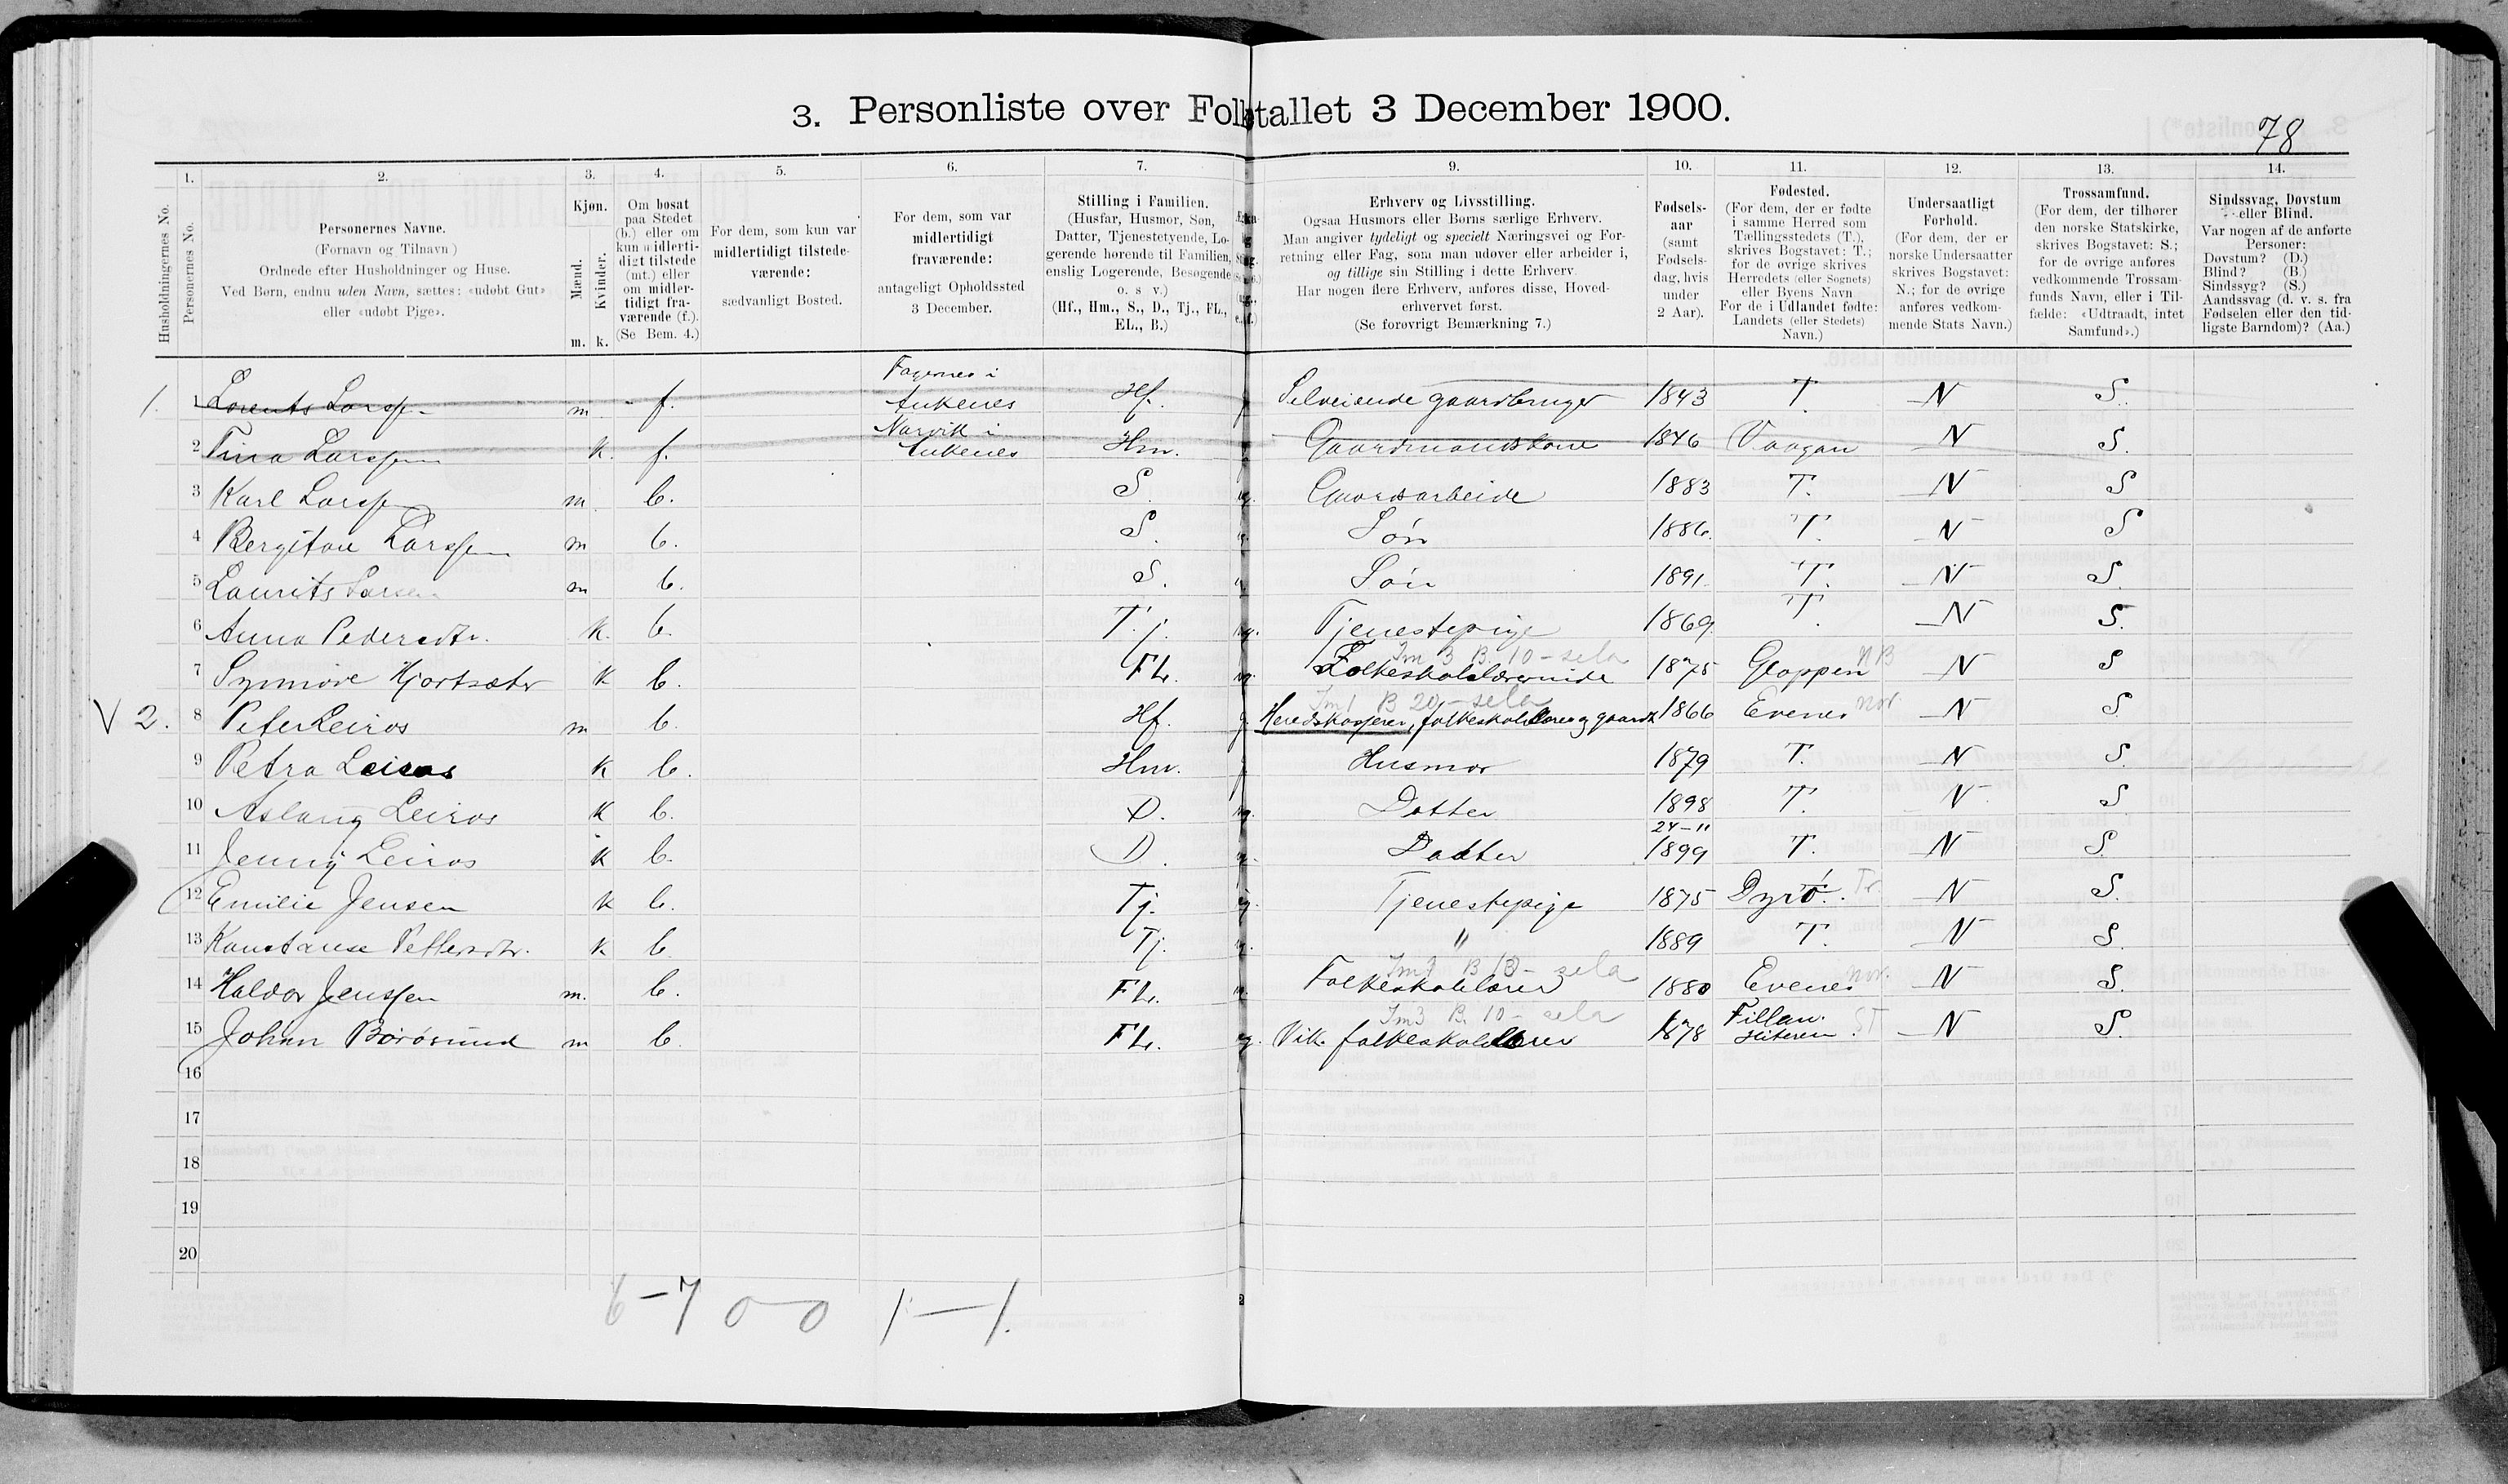 3. Personliste over Folketallet 3 December 1900.
78
1. 2. 3. 4. 5. 6. 7. 9. 10. 11. 12. 13. 14.
Husholdningernes No.
Personernes No.
Personernes Navne.
(Fornavn og Tilnavn)
Ordnede efter Husholdninger og Huse.
Ved Børn, endnu uden Navn, sættes: «udøbt Gut»
eller «udøbt Pige».
Kjøn.
Mænd.
Kvinder.
m. k.
Om bosat
paa Stedet
(b.) eller om
kun midlerti-
digt tilstede
(mt.) eller
om midler-
tidigt fra-
værende (f.).
(Se Bem. 4.)
For dem, som kun var
midlertidigt tilstede-
værende:
sædvanligt Bosted.
For dem, som var
midlertidigt
fraværende:
antageligt Opholdssted
3 December.
Stilling i Familien.
(Husfar, Husmor, Søn,
Datter, Tjenestetyende, Lo-
gerende hørende til Familien,
enslig Logerende, Besøgende
o. s v.)
(Hf., Hm., S., D., Tj., FL.,
EL., B.)
Erhverv og Livsstilling.
Ogsaa Husmors eller Børns særlige Erhverv.
Man angiver tydeligt og specielt Næringsvei og For-
retning eller Fag, som man udøver eller arbeider i,
og tillige sin Stilling i dette Erhverv.
Har nogen flere Erhverv, anføres disse, Hoved-
erhvervet først.
(Se forøvrigt Bemærkning 7.)
Fødsels-
aar
(samt
Fødsels-
dag, hvis
under
2 Aar).
Fødested.
(For dem, der er fødte
i samme Herred som
Tællingsstedets (T.),
skrives Bogstavet: T.;
for de øvrige skrives
Herredets (eller Sognets)
eller Byens Navn
For de i Udlandet fødte:
Landets (eller Stedets)
Navn.)
Undersaatligt
Forhold.
(For dem, der er
norske Undersaatter
skrives Bogstavet:
N.; for de øvrige
anføres vedkom-
mende Stats Navn.)
Trossamfund.
(For dem, der tilhører
den norske Statskirke,
skrives Bogstavet: S.;
for de øvrige anføres
vedkommende Trossam-
funds Navn, eller i Til-
fælde: «Udtraadt, intet
Samfund».)
Sindssvag, Døvstum
eller Blind.
Var nogen af de anførte
Personer:
Døvstum? (D.)
Blind? (B.)
Sindssyg? (S.)
Aandssvag (d. v. s. fra
Fødselen eller den tid-
ligste Barndom)? (Aa.)
1. 1 Lorents Larssen m. f. Fagernes i Ankenes Hf. Selveiende gaardbruger 1843 T. N S.
2 Tina Larssen k. f. Narvik i Ankenes Hm. Gaardmandskone 1846 Vaagan N S.
3 Karl Larssen m. b. S. Gaardsarbeide 1883 T. N S
4 Bergiton Larssen m b. S. Søn 1886. T. N S
5 Laurits Larsen m b. S. Søn 1891. T. N S.
6 Anna Pedersdtr. k. b. T.j. Tjenestepige 1869. T. N S.
Im 3 B. 10 - sela
7 Synnøve Hjortsæter k b. FL. Folkeskolelærerinde 1875 Gloppen NB N S
Im 1 B 20 - sela
V 2. 8 Peter Leiros m b. Hf. g. Heredskasserer, folkeskolelærer og gaardb 1866 Evenes Nor. N S
9 Petra Leiros k b. Hm. Husmor 1879 T. N S.
10 Aslaug Leiros k b. D. Datter 1898 T. N S
11 Jenny Leiros k b. D. Datter 24-11 1899 T. N S.
12 Emilie Jensen k b. Tj. Tjenestepige 1875 Dyrö. Tr. N S.
13 Konstanse Pettersdtr. k b Tj. " 1889 T. N S.
Im3 B 10 - sela
14 Haldor Jenssen m. b. FL. Folkeskolelærer 1880 Evenes Nor. N S.
Im3 B. 10 - sela
15 Johan Børøsund m b. FL. Vik. folkeskolelærer 1878 Fillan. Hiteren ST N S.
16
17
18
19
20
6-7 0-0 1-1.